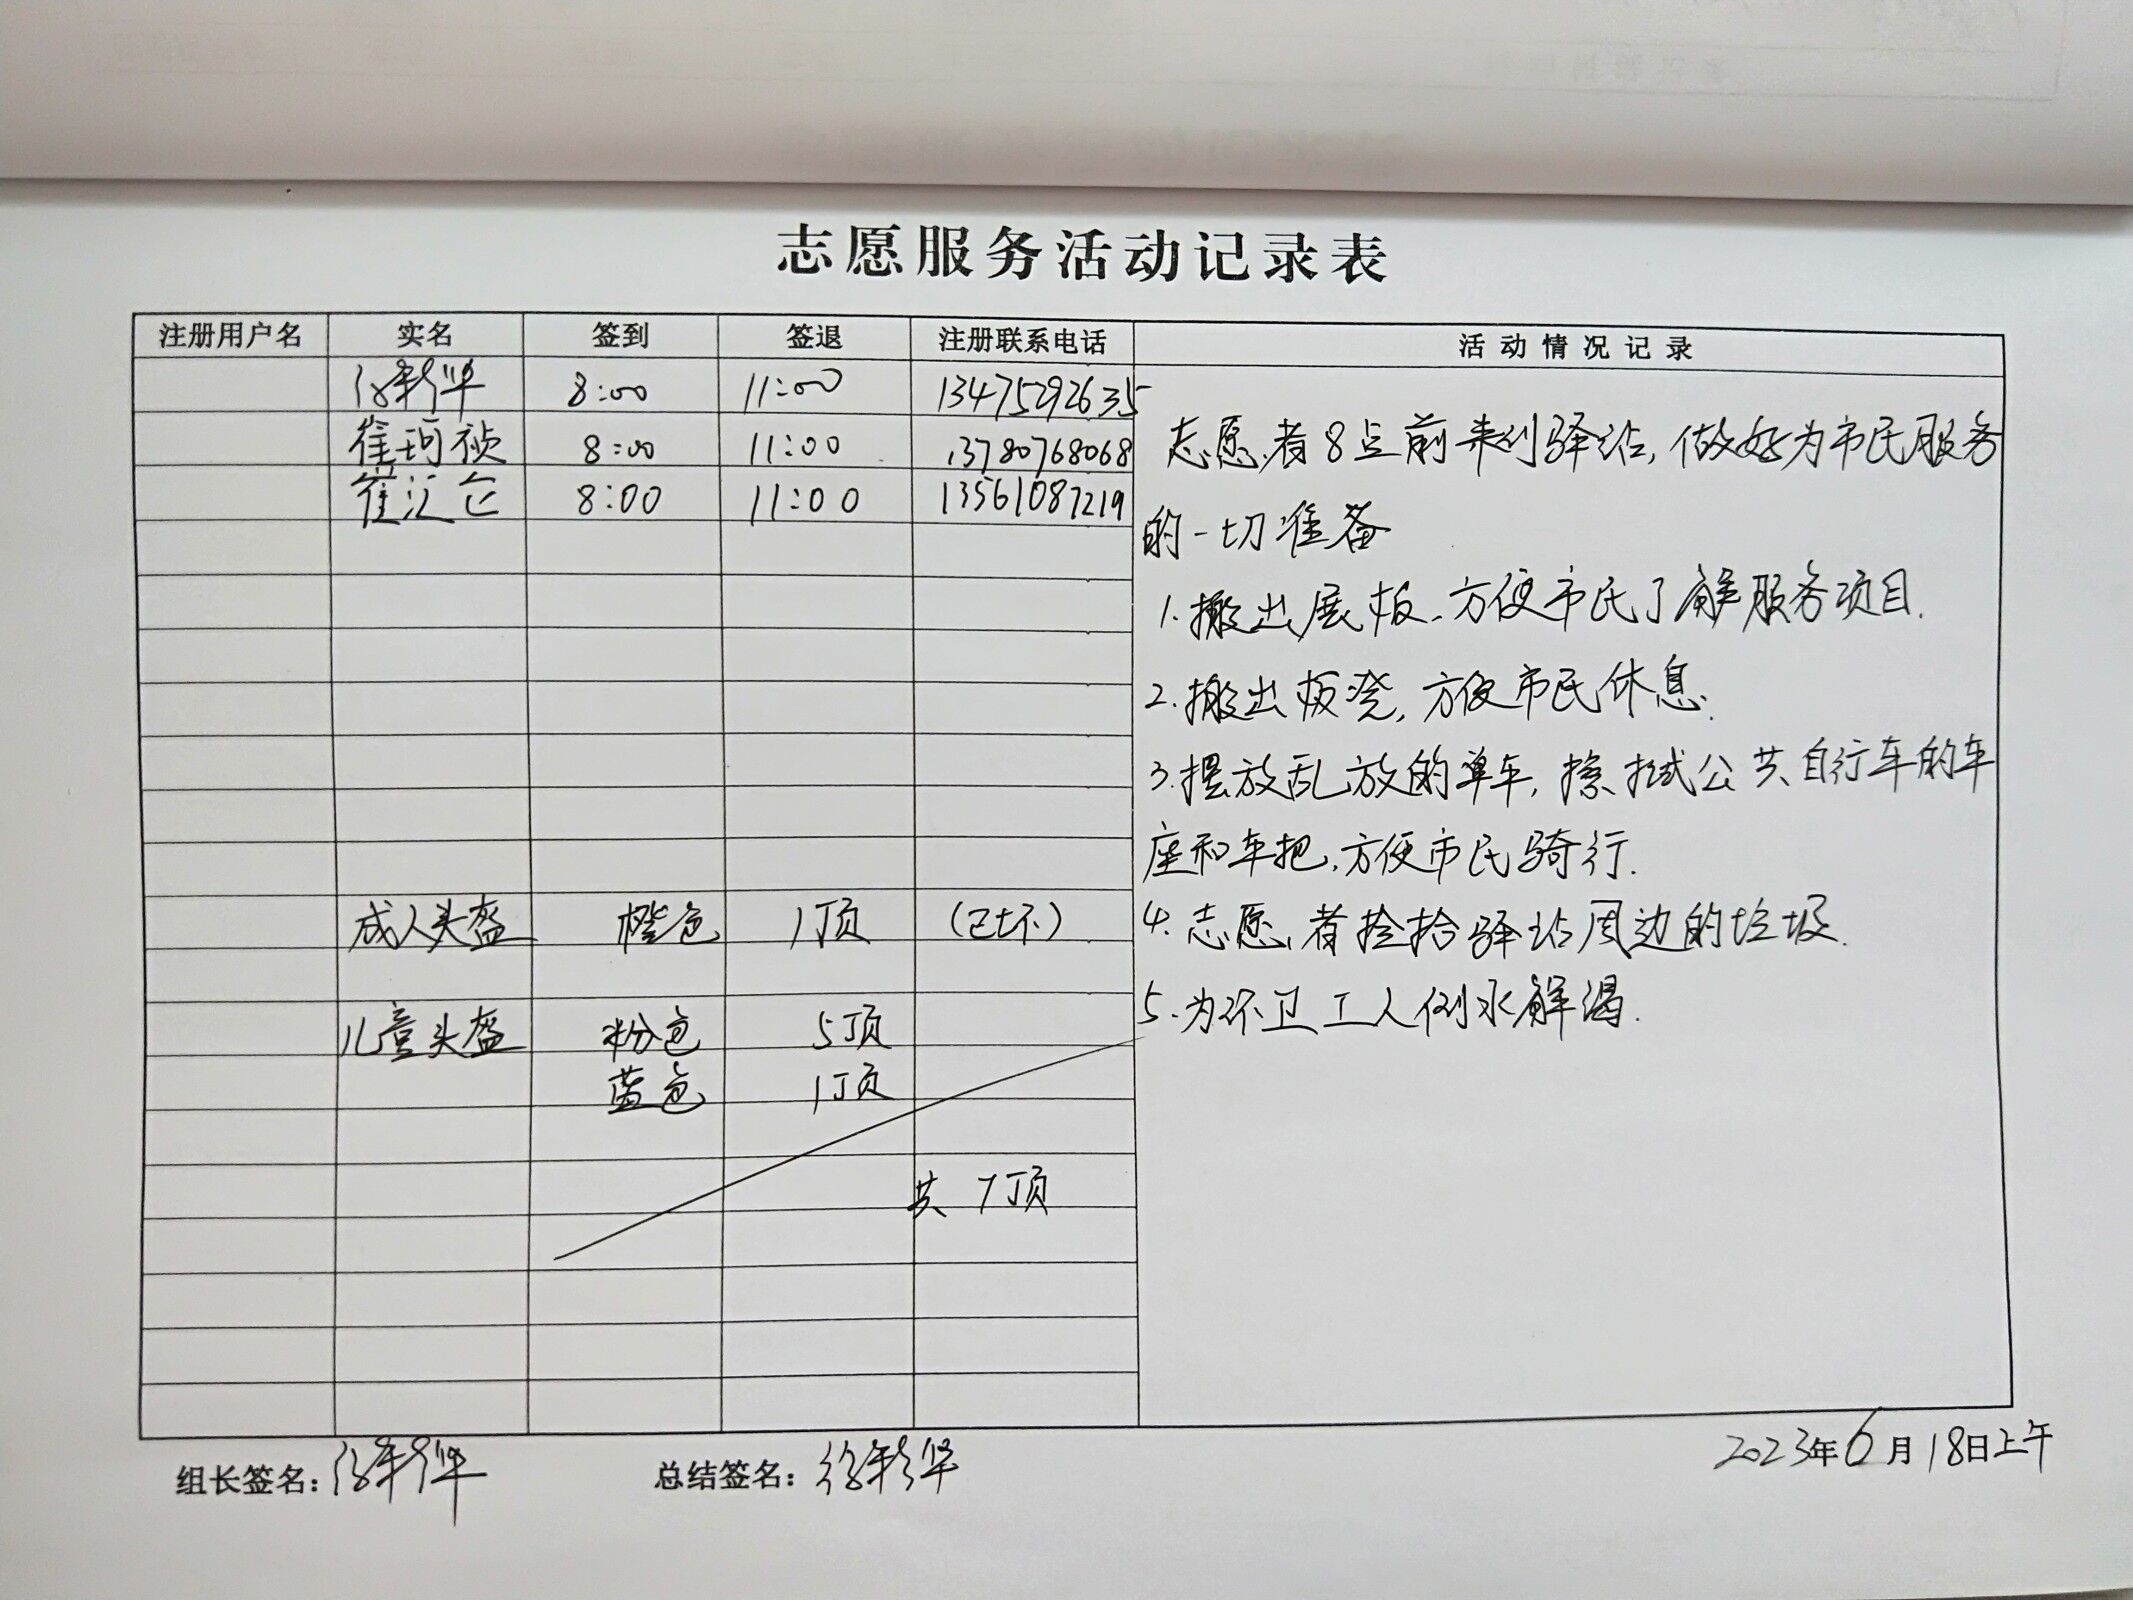 志愿服务活动记录表
注册用户名 实名 签到 签退 注册联系电话 活动情况记录
8:00 11:00 13475292635
崔珂祯 8:00 11:00 13780768068
崔 8:00 11:00 13561087219
志愿者8点前来到驿站,做好为市民服务
的一切准备
1.搬出展板、方便市民了解服务项目.
2.搬出板凳,方便市民休息.
3.摆放乱放的单车,擦拭公共自行车的车
座和车把,方便市民骑行.
4.志愿者捡拾驿站周边的垃圾.
5.为环卫工人倒水解渴.
成人头盔 橙色 1顶 (已坏)
儿童头盔 粉色 5顶
蓝色 1顶
共 7顶
组长签名: 总结签名:
2023年6月18日上午